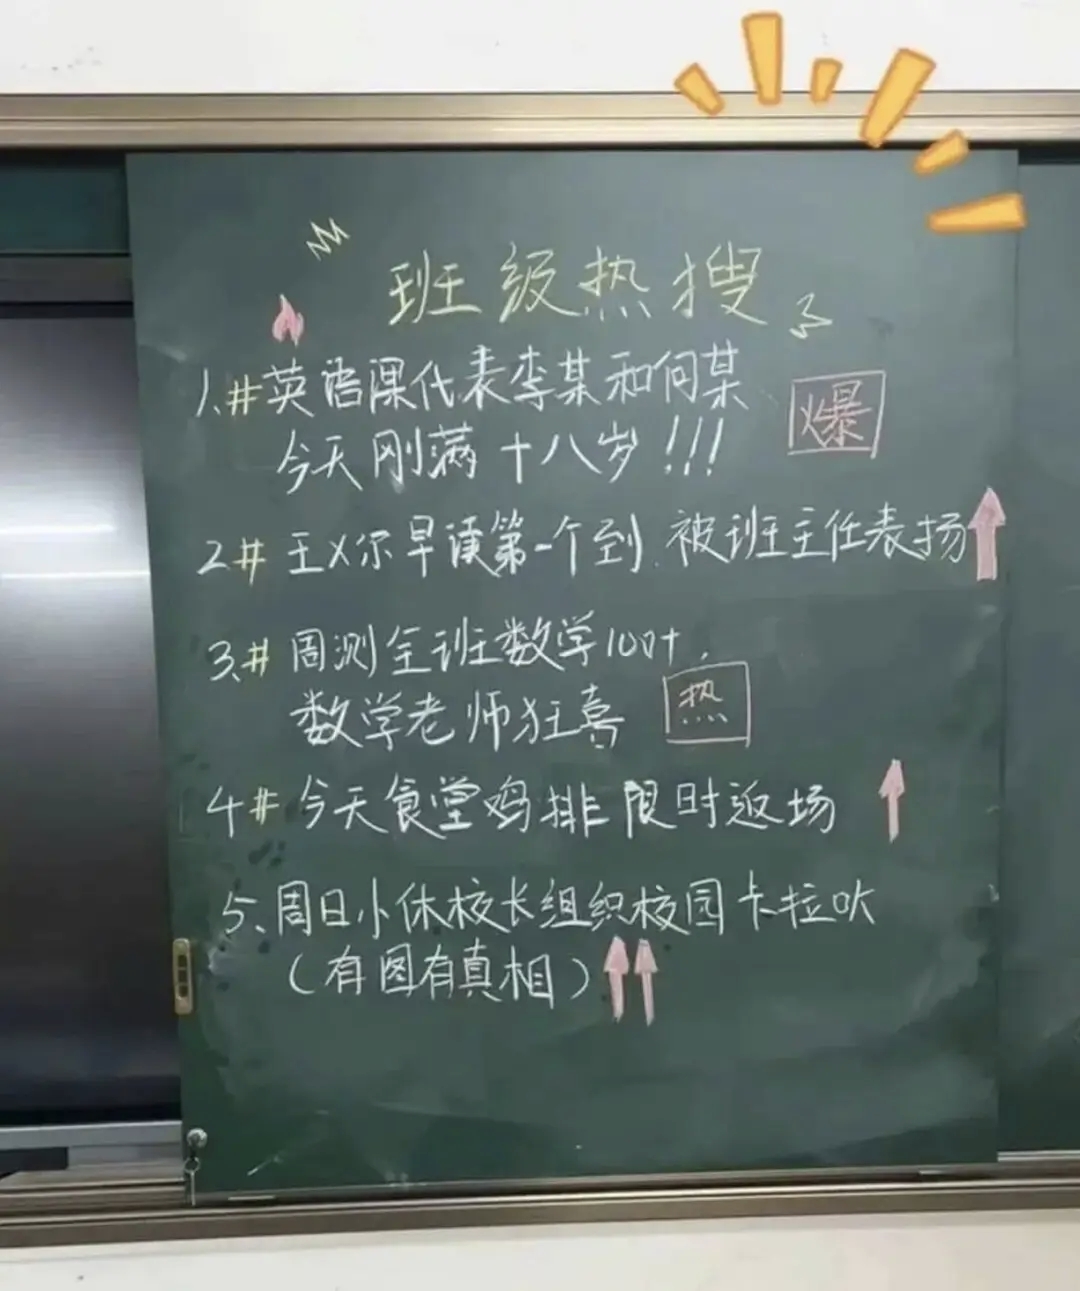 班级热搜
1.#英语课代表李某和何某
今天刚满十八岁!!!
爆
2# 王X尔早读第一个到.被班主任表扬
3.# 周测全班数学100+,
数学老师狂喜
热
4# 今天食堂鸡排限时返场
5、周日小休校长组织校园卡拉吹
(有图有真相)